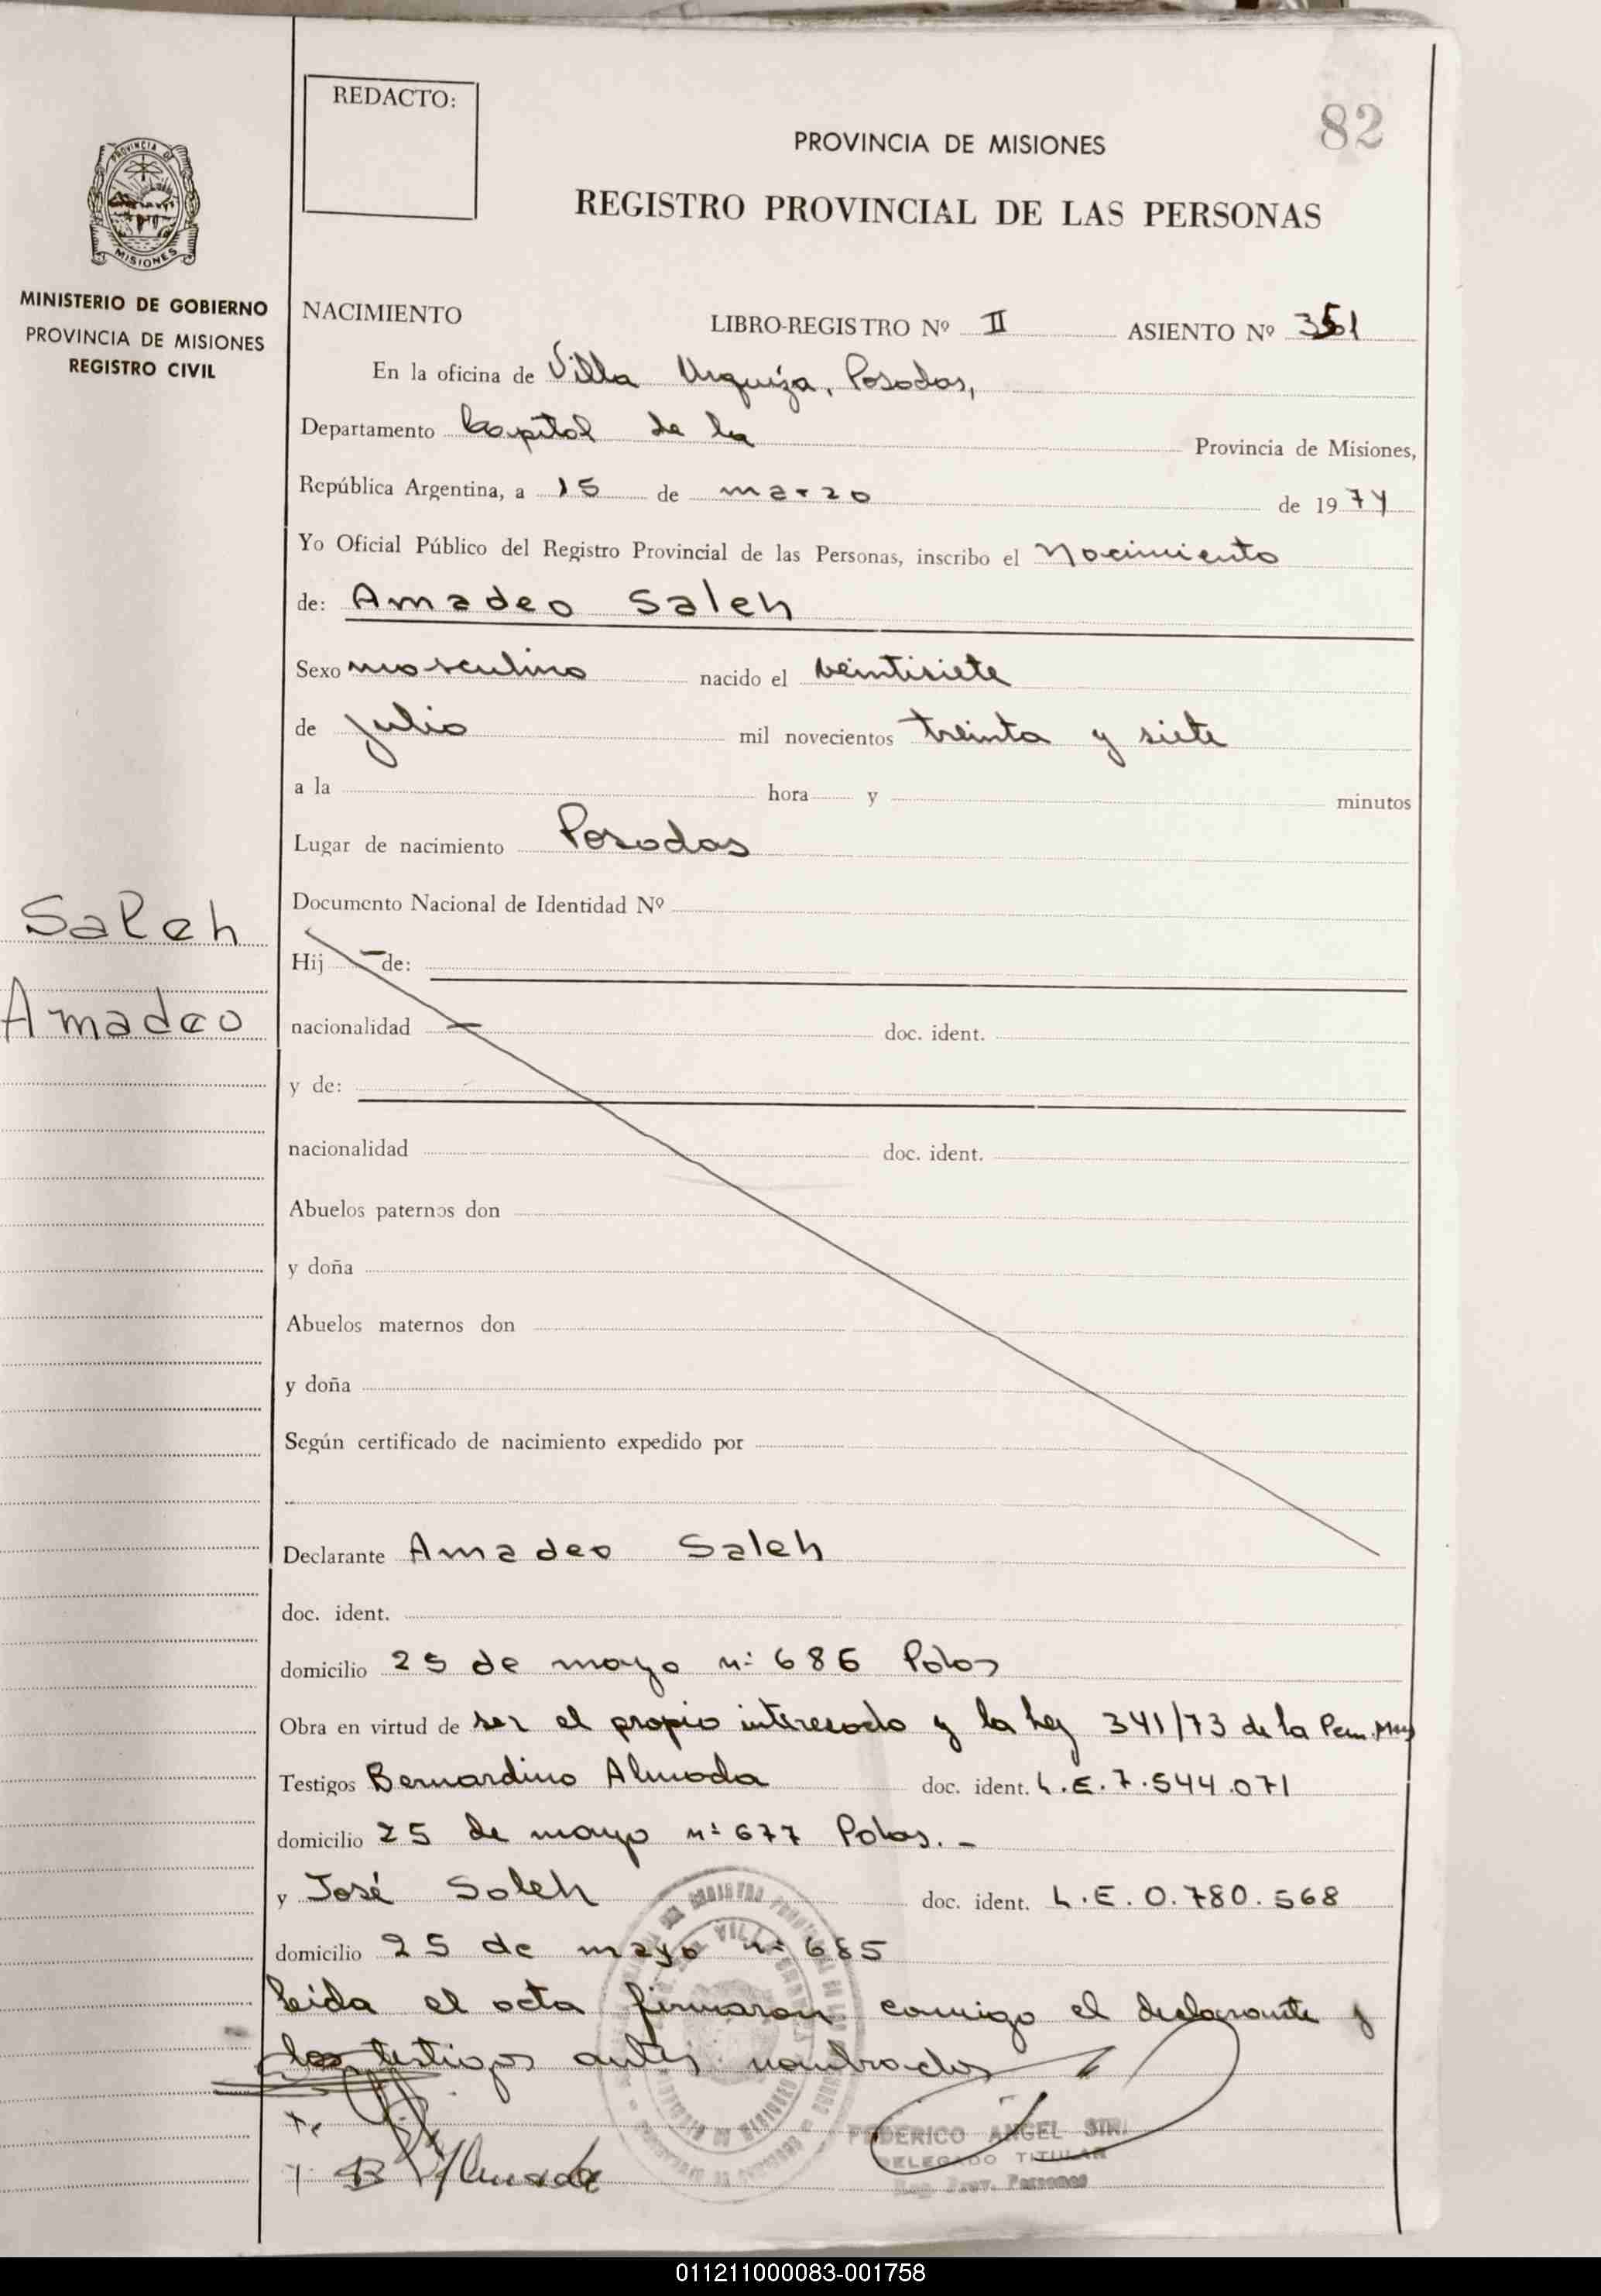 REDACTO:
82
PROVINCIA DE MISIONES
REGISTRO PROVINCIAL DE LAS PERSONAS
PROVINCIA DE
MISIONES
MINISTERIO DE GOBIERNO
PROVINCIA DE MISIONES
REGISTRO CIVIL
NACIMIENTO LIBRO-REGISTRO Nº II ASIENTO Nº 351
En la oficina de Villa Urquiza, Posadas,
Departamento Capital de la Provincia de Misiones,
República Argentina, a 15 de marzo de 1974
Yo Oficial Público del Registro Provincial de las Personas, inscribo el Nacimiento
de: Amadeo Saleh
Sexo masculino nacido el veintisiete
de julio mil novecientos treinta y siete
a la hora y minutos
Lugar de nacimiento Posadas
Documento Nacional de Identidad Nº
Saleh
Amadeo
Hij de:
nacionalidad doc. ident.
y de:
nacionalidad doc. ident.
Abuelos paternos don
y doña
Abuelos maternos don
y doña
Según certificado de nacimiento expedido por
Declarante Amadeo Saleh
doc. ident.
domicilio 25 de mayo nº 686 Pdas
Obra en virtud de ser el propio interesado y la ley 341/73 de la
Testigos Bernardino Almada doc. ident. L.E. 7.544.071
domicilio 25 de mayo nº 677 Pdas. -
y José Saleh doc. ident. L.E. 0.780.568
domicilio 25 de mayo nº 685
leida el acta firmaron conmigo el declarante y
los testigos antes nombrados
B Almada
FEDERICO ANGEL
DELEGADO TITULAR
Reg. Prov. Personas
011211000083-001758